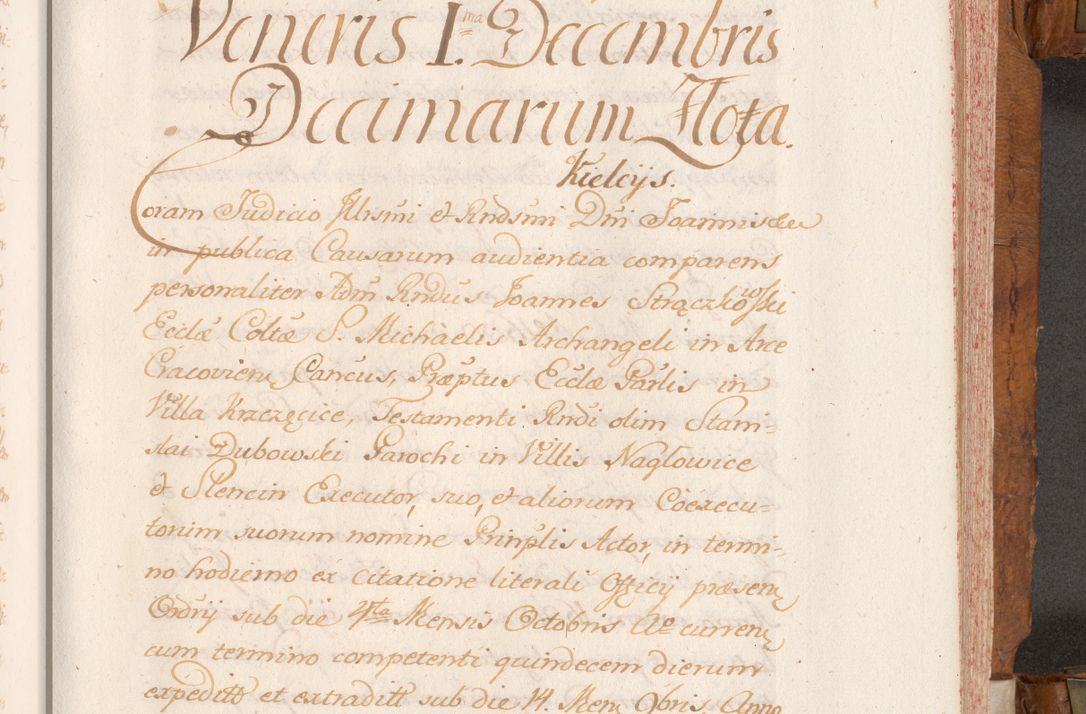 Veneris I.ma Decembris
Decimarum Nota.
Kielcijs.
Coram Judicio Illrsmi et Rndsmi Dni Joannis &c
in publica Causarum audientia comparens
personaliter Adm Rndus Joannes Strączkowski
Ecclæ Coltæ S. Michaelis Archangeli in Arce
Cracovien Cancus, Præptus Ecclæ Parlis in
Villa Krzczęcice, Testamenti Rndi olim Stani-
slai Dubowski Parochi in Villis Naglowice
et Slencin Executor, suo, et aliorum Coexecu-
torum suorum nomine Prinplis Actor, in termi-
no hodierno ex citatione literali Officij præsen
Ordrij sub die 4ta Mensis Octobris Ao curren
cum termino competenti quindecem dierum
expeditt et extraditt sub die 14. Men Xbris. Anno